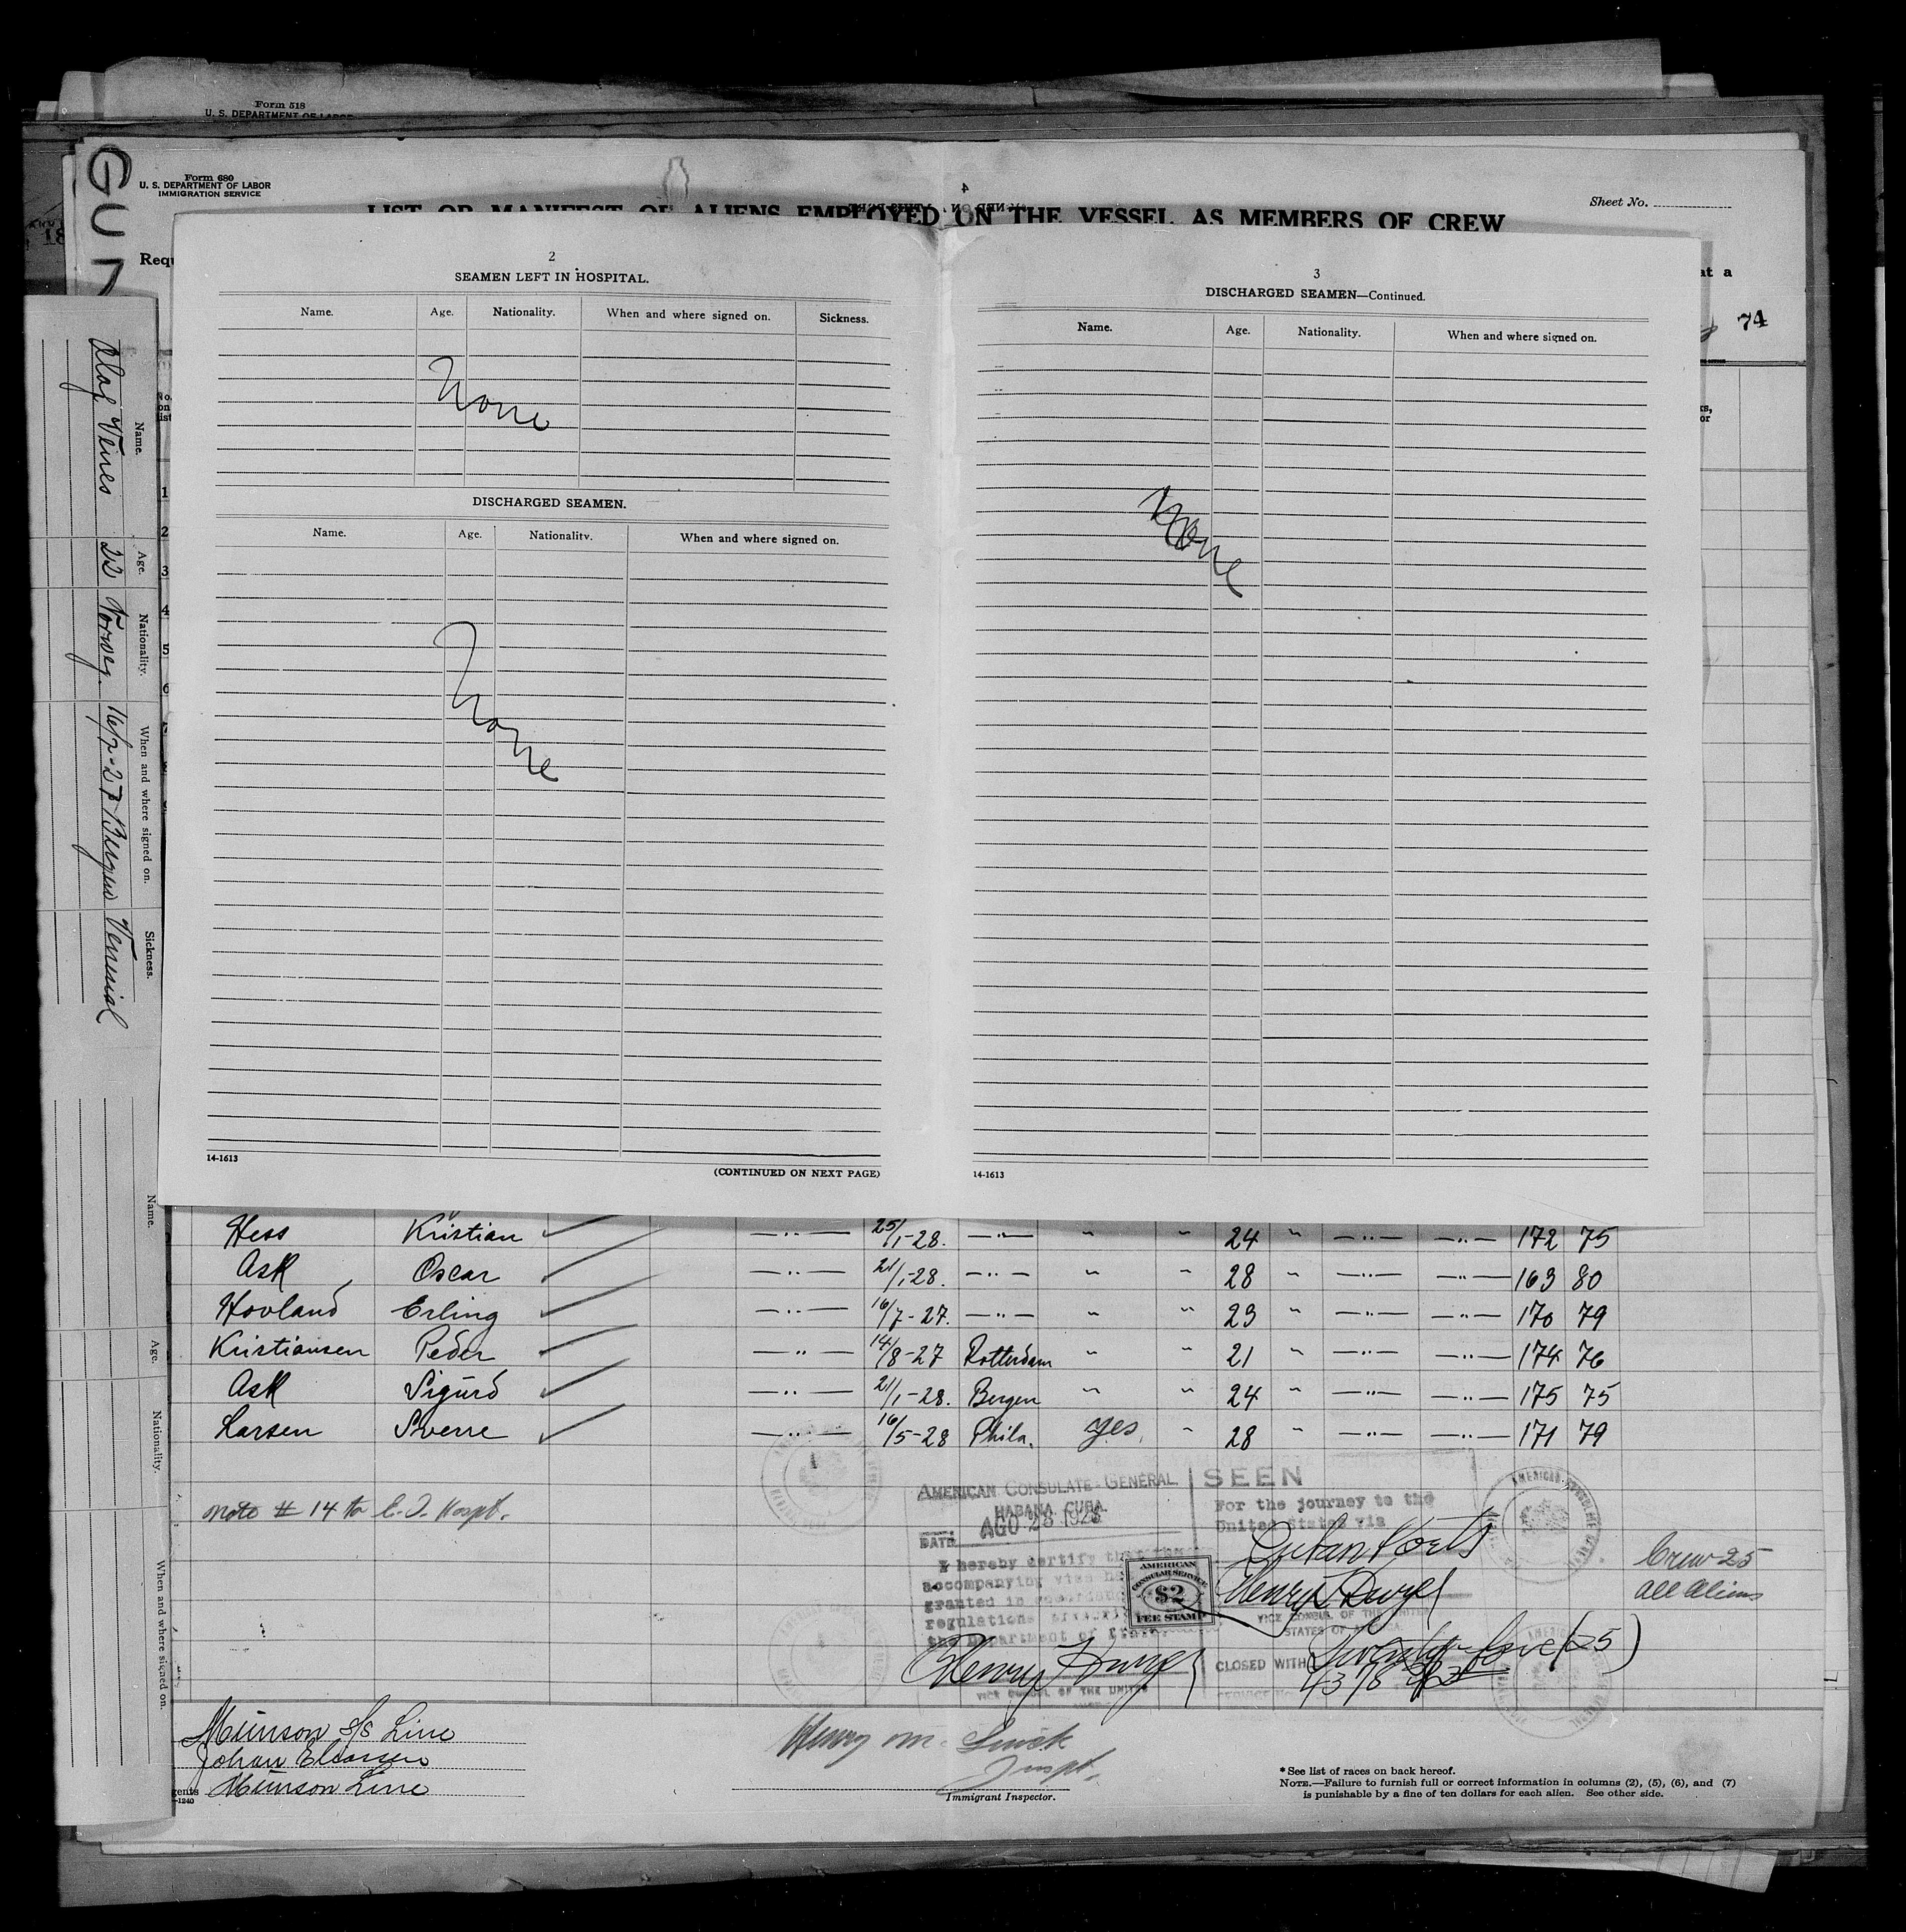 Form 518
U. S. DEPARTMENT OF LABOR
Form 680
U. S. DEPARTMENT OF LABOR
IMMIGRATION SERVICE
Sheet No.
LIST OR MANIFEST OF ALIENS EMPLOYED ON THE VESSEL AS MEMBERS OF CREW
74
2
SEAMEN LEFT IN HOSPITAL.
Name. Age. Nationality. When and where signed on. Sickness.
None
DISCHARGED SEAMEN.
Name. Age. Nationality. When and where signed on.
None
14-1613
(CONTINUED ON NEXT PAGE)
3
DISCHARGED SEAMEN—Continued.
Name. Age. Nationality. When and where signed on.
None
14-1613
Name. Age. Nationality. When and where signed on. Sickness.
Olaf Veines 22 Norweg. 16/7-27 Bergen Venerial
Name. Age. Nationality. When and where signed on.
Hess Kristian 25/1-28. 24 172 75
Ask Oscar 21/1-28. 28 163 80
Hovland Erling 16/7-27. 23 170 79
Kristiansen Peder 14/8-27 Rotterdam 21 174 76
Ask Sigurd 21/1-28. Bergen 24 175 75
Larsen Sverre 16/5-28 Phila. yes 28 171 79
Note # 14 to Hospt.
AMERICAN CONSULATE-GENERAL
HABANA, CUBA.
DATE AGO 28 1928
I hereby certify that the
accompanying visa
granted in
regulations
the Department of State.
VICE CONSUL OF THE UNITED
AMERICAN
CONSULAR SERVICE
$2
FEE STAMP
SEEN
For the journey to the
United States via
VICE CONSUL OF THE UNITED
STATES OF AMERICA
CLOSED WITH Twenty five (25)
Crew 25
all aliens
Munson S/S Line
Johan Eliassen
Munson Line
Henry M.
Inspt.
Immigrant Inspector.
* See list of races on back hereof.
NOTE.—Failure to furnish full or correct information in columns (2), (5), (6), and (7)
is punishable by a fine of ten dollars for each alien. See other side.